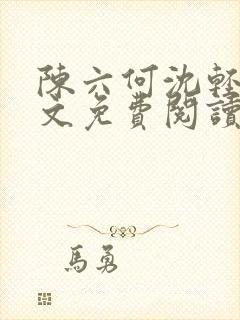 陳六何沈輕
文免費閱讀
馬勇